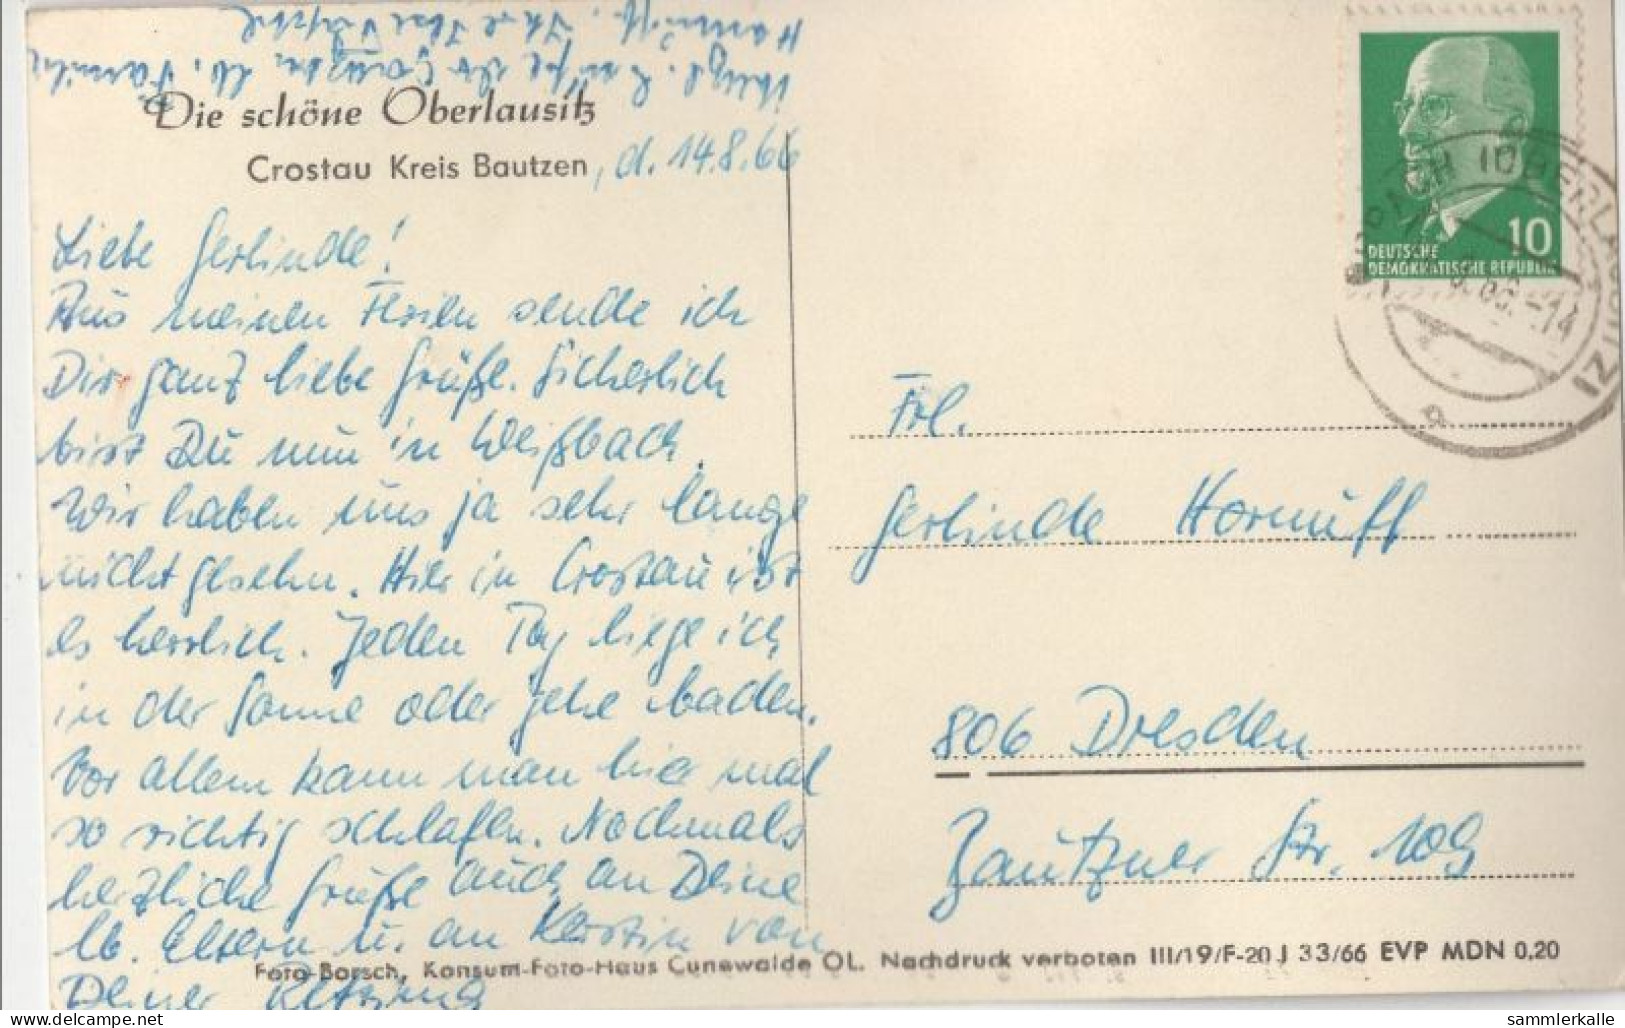 Die schöne Oberlausitz
Crostau Kreis Bautzen, d. 14.8.66
Liebe Gerlinde!
Aus meinen Ferien sende ich
Dir ganz liebe Grüße. Sicherlich
bist Du nun in Weißbach.
Wir haben uns ja sehr lange
nicht gesehen. Hier in Crostau ist
es herrlich. Jeden Tag liege ich
in der Sonne oder gehe baden.
Vor allem kann man hier mal
so richtig schlafen. Nochmals
herzliche Grüße auch an Deine
lb. Eltern u. an Kerstin von
Deiner
Herzl. Grüße der ganzen lb. Familie
Hornuff. Ihre Ilse
10
DEUTSCHE
DEMOKRATISCHE REPUBLIK
(OBERLAUSITZ)
Frl.
Gerlinde Hornuff
806 Dresden
Bautzner Str. 109
Foto-Borsch, Konsum-Foto-Haus Cunewalde OL. Nachdruck verboten III/19/F-20 J 33/66 EVP MDN 0,20
www.delcampe.net
sammlerkalle